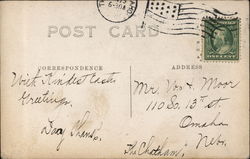 6-30A
POST CARD
CORRESPONDENCE
ADDRESS
With Kindest Easter
Greetings.
Mr Wm H. Moor
110 So. 13" St
Omaha
Nebr.
"The Chatham"
ONE CENT